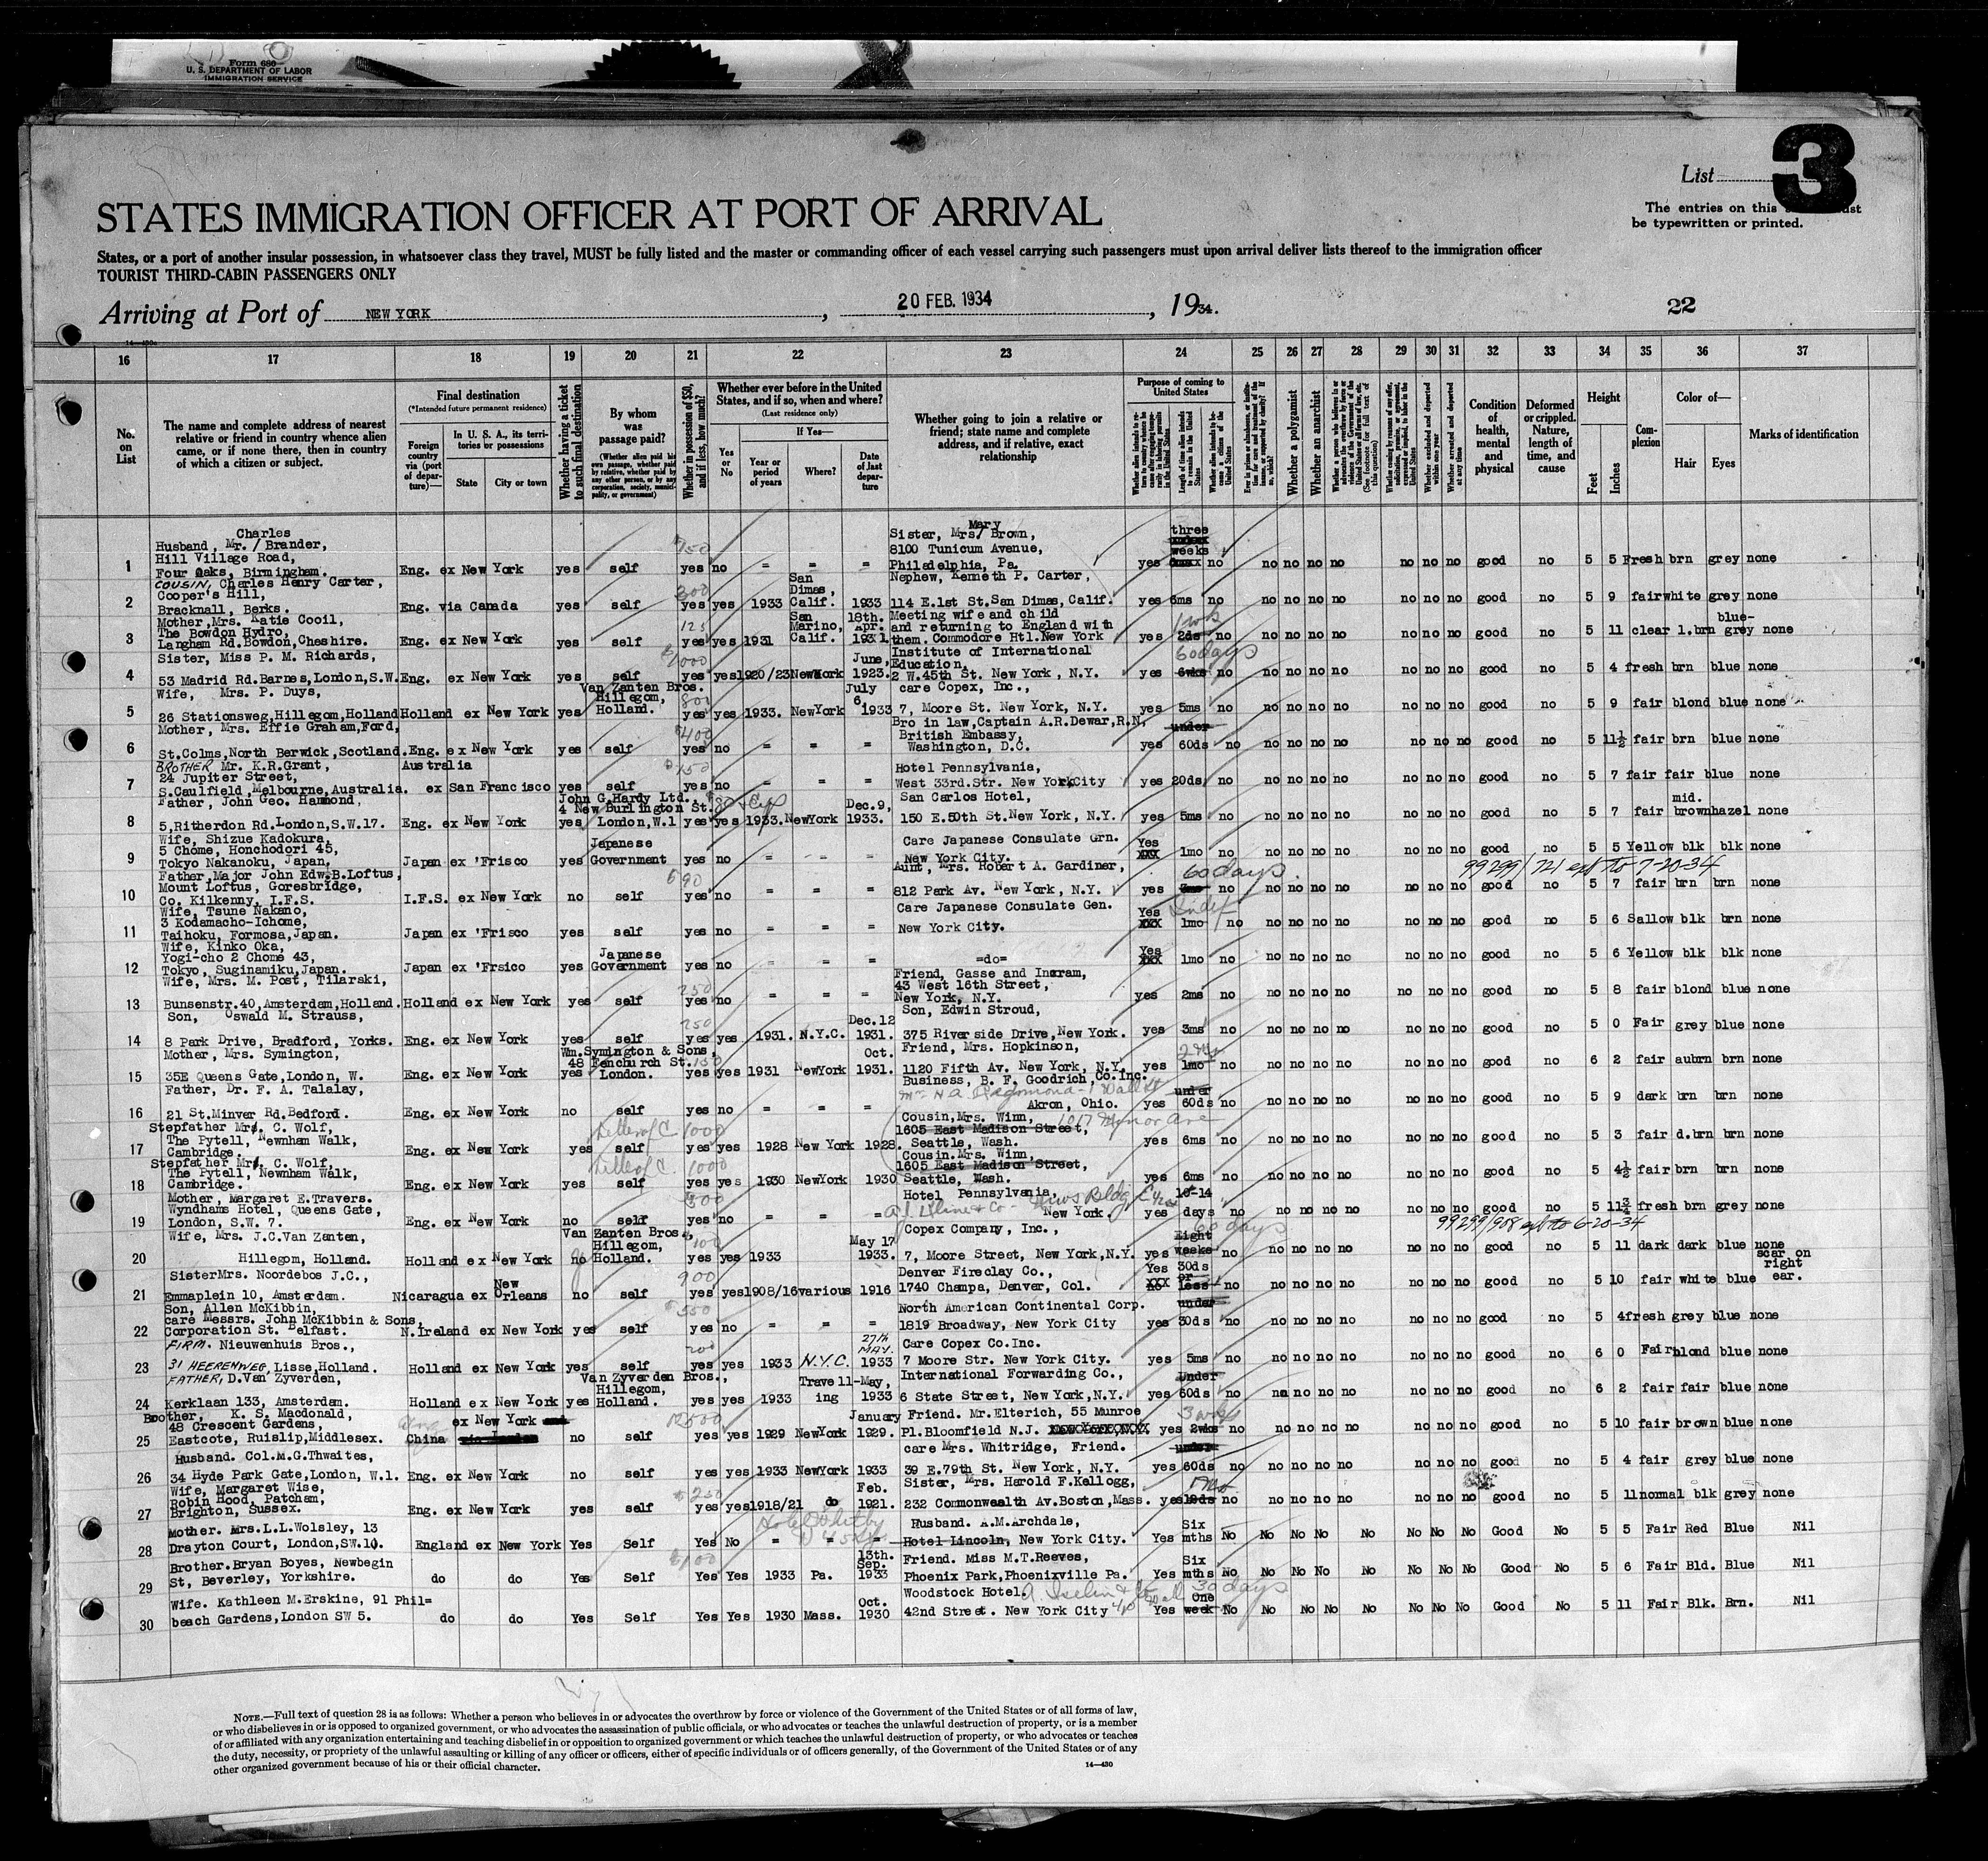 Form 680
U. S. DEPARTMENT OF LABOR
IMMIGRATION SERVICE
List 3
The entries on this must
be typewritten or printed.
STATES IMMIGRATION OFFICER AT PORT OF ARRIVAL
States, or a port of another insular possession, in whatsoever class they travel, MUST be fully listed and the master or commanding officer of each vessel carrying such passengers must upon arrival deliver lists thereof to the immigration officer
TOURIST THIRD-CABIN PASSENGERS ONLY
Arriving at Port of NEW YORK, 20 FEB. 1934, 1934. 22
16 17 18 19 20 21 22 23 24 25 26 27 28 29 30 31 32 33 34 35 36 37
No. on List
The name and complete address of nearest relative or friend in country whence alien came, or if none there, then in country of which a citizen or subject.
Final destination
(*Intended future permanent residence)
Foreign country via (port of departure)—
In U. S. A., its territories or possessions
State City or town
Whether having a ticket to such final destination
By whom was passage paid?
(Whether alien paid his own passage, whether paid by relative, whether paid by any other person, or by any corporation, society, municipality, or government)
Whether in possession of $50, and if less, how much?
Whether ever before in the United States, and if so, when and where?
(Last residence only)
Yes or No
If Yes—
Year or period of years
Where?
Date of last departure
Whether going to join a relative or friend; state name and complete address, and if relative, exact relationship
Purpose of coming to United States
Whether a polygamist
Whether an anarchist
Condition of health, mental and physical
Deformed or crippled. Nature, length of time, and cause
Height
Feet Inches
Complexion
Color of—
Hair Eyes
Marks of identification
Charles
Husband, Mr. / Brander,
Hill Village Road,
1 Four Oaks, Birmingham. Eng. ex New York yes self 750 yes no = = = Sister, Mrs/ Mary Brown, 8100 Tunicum Avenue, Philadelphia, Pa. yes three weeks no no no no no no no no good no 5 5 Fresh brn grey none
COUSIN, Charles Henry Carter,
Cooper's Hill,
2 Bracknall, Berks. Eng. via Canada yes self 300 yes yes 1933 San Dimas, Calif. 1933 Nephew, Kenneth P. Carter, 114 E.1st St.San Dimas, Calif. yes 6ms no no no no no no no no good no 5 9 fair white grey none
Mother, Mrs. Katie Cooil,
The Bowdon Hydro,
3 Langham Rd.Bowdon, Cheshire. Eng. ex New York yes self 125 yes yes 1931 San Marino, Calif. 18th. Apr. 1931. Meeting wife and child and returning to England with them. Commodore Htl.New York yes 1 wk 2ds no no no no no no no no good no 5 11 clear l.brn blue-grey none
Sister, Miss P. M. Richards,
4 53 Madrid Rd.Barnes, London, S.W. Eng. ex New York yes self $1000 yes yes 1920/23 NewYork June, 1923. Institute of International Education, 2 W.45th St. New York, N.Y. yes 60 days 6wks no no no no no no no no good no 5 4 fresh brn blue none
Wife, Mrs. P. Duys,
5 26 Stationsweg, Hillegom, Holland Holland ex New York yes Van Zanten Bros. Hillegom, Holland. 800 yes yes 1933. NewYork July 6 1933 care Copex, Inc., 7, Moore St. New York, N.Y. yes 5ms no no no no no no no no good no 5 9 fair blond blue none
Mother, Mrs. Effie Graham, Ford,
6 St.Colms, North Berwick, Scotland. Eng. ex New York yes self $400 yes no = = = Bro in law, Captain A.R.Dewar, R.N, British Embassy, Washington, D.C. yes under 60ds no no no no no no no no good no 5 11½ fair brn blue none
BROTHER Mr. K.R.Grant,
24 Jupiter Street,
7 S.Caulfield, Melbourne, Australia. Australia ex San Francisco yes self $150 yes no = = = Hotel Pennsylvania, West 33rd.Str. New York City yes 20ds no no no no no no no no good no 5 7 fair fair blue none
Father, John Geo. Hammond,
8 5, Ritherdon Rd. London, S.W.17. Eng. ex New York yes John G.Hardy Ltd., 4 New Burlington St. London, W.1 yes yes 1933. NewYork Dec.9, 1933. San Carlos Hotel, 150 E.50th St.New York, N.Y. yes 5ms no no no no no no no no good no 5 7 fair mid. brown hazel none
Wife, Shizue Kadokura,
5 Chome, Honchodori 45,
9 Tokyo Nakanoku, Japan, Japan ex 'Frisco yes Japanese Government yes no - = = Care Japanese Consulate Grn. New York City. Yes XXX 1mo no no no no no no no no good no 5 5 Yellow blk blk none
99299/721 ext to 7-20-34
Father, Major John Edw.B.Loftus,
Mount Loftus, Goresbridge,
10 Co. Kilkenny, I.F.S. I.F.S. ex New York no self 590 yes no = = = Aunt, Mrs. Robert A. Gardiner, 812 Park Av. New York, N.Y. yes 60 days. no no no no no no no no good no 5 7 fair brn brn none
Wife, Tsune Nakano,
3 Kodamacho-Ichome,
11 Taihoku, Formosa, Japan. Japan ex 'Frisco yes self yes no = = = Care Japanese Consulate Gen. New York City. Yes XXX Indef 1mo no no no no no no no no good no 5 6 Sallow blk brn none
Wife, Kinko Oka,
Yogi-cho 2 Chome 43,
12 Tokyo, Suginamiku, Japan. Japan ex 'Frsico yes Japanese Government yes no = = = =do= Yes XXX 1mo no no no no no no no no good no 5 6 Yellow blk blk none
Wife, Mrs. M. Post, Tilarski,
13 Bunsenstr.40, Amsterdam, Holland. Holland ex New York yes self 250 yes no = = = Friend, Gasse and Ingram, 43 West 16th Street, New York, N.Y. yes 2ms no no no no no no no no good no 5 8 fair blond blue none
Son, Oswald M. Strauss,
14 8 Park Drive, Bradford, Yorks. Eng. ex New York yes self 250 yes yes 1931. N.Y.C. Dec.12 1931. Son, Edwin Stroud, 375 Riverside Drive, New York. yes 3ms no no no no no no no no good no 5 0 Fair grey blue none
Mother, Mrs. Symington,
15 35E Queens Gate, London, W. Eng. ex New York yes Wm.Symington & Sons, 48 Fenchurch St. London. 150 yes yes 1931 NewYork Oct. 1931. Friend, Mrs. Hopkinson, 1120 Fifth Av. New York, N.Y. yes 1mo no no no no no no no no good no 6 2 fair aubrn brn none
Father, Dr. F. A. Talalay,
16 21 St.Minver Rd.Bedford. Eng. ex New York no self yes no = = = Business, B. F. Goodrich, Co.Inc. Akron, Ohio. yes under 60ds no no no no no no no no good no 5 9 dark brn brn none
Stepfather Mr. C. Wolf,
The Pytell, Newnham Walk,
17 Cambridge. Eng. ex New York yes Letter of C. self 1000 yes yes 1928 New York 1928. Cousin, Mrs. Winn, 1605 East Madison Street, 1017 Minor Ave Seattle, Wash. yes 6ms no no no no no no no no good no 5 3 fair d.brn brn none
Stepfather Mr. C. Wolf,
The Pytell, Newnham Walk,
18 Cambridge. Eng. ex New York yes self 1000 yes yes 1930 NewYork 1930 Cousin. Mrs. Winn, 1605 East Madison Street, Seattle, Wash. yes 6ms no no no no no no no no good no 5 4½ fair brn brn none
Mother, Margaret E.Travers.
Wyndhams Hotel, Queens Gate,
19 London, S.W. 7. Eng. ex New York no self 500 yes no = = = Hotel Pennsylvania, New York. yes 10-14 days no no no no no no no no good no 5 11¾ fresh brn grey none
99299/908 ext to 6-20-34
Wife, Mrs. J.C.Van Zanten,
20 Hillegom, Holland. Holland ex New York no Van Zanten Bros., Hillegom, Holland. 100 yes yes 1933 May 17 1933. Copex Company, Inc., 7, Moore Street, New York, N.Y. yes 60 days Eight weeks no no no no no no no no good no 5 11 dark dark blue none
SisterMrs. Noordebos J.C.,
21 Emmaplein 10, Amsterdam. Nicaragua ex New Orleans no self 900 yes yes 1908/16 various 1916 Denver Fireclay Co., 1740 Champa, Denver, Col. Yes XXX no 30ds or less no no no no no no no no good no 5 10 fair white blue scar on right ear.
Son, Allen McKibbin,
care Messrs. John McKibbin & Sons,
22 Corporation St. Belfast. N.Ireland ex New York yes self $550 yes no = = = North American Continental Corp. 1819 Broadway, New York City yes under 30ds no no no no no no no no good no 5 4 fresh grey blue none
FIRM. Nieuwenhuis Bros.,
23 31 HEERENWEG, Lisse, Holland. Holland ex New York yes self 200 yes yes 1933 N.Y.C. 27th MAY. 1933 Care Copex Co.Inc. 7 Moore Str. New York City. yes 5ms no no no no no no no no good no 6 0 Fair blond blue none
FATHER, D.Van Zyverden,
24 Kerklaan 133, Amsterdam. Holland ex New York yes Van Zyverden Bros., Hillegom, Holland. yes yes 1933 Travelling May, 1933 International Forwarding Co., 6 State Street, New York, N.Y. yes Under 60ds no no no no no no no no good no 6 2 fair fair blue none
Brother, K. S. Macdonald,
48 Crescent Gardens,
25 Eastcote, Ruislip, Middlesex. China ex New York no self yes yes 1929 NewYork January 1929. Friend. Mr.Elterich, 55 Munroe Pl.Bloomfield N.J. yes 3 wks 2wks no no no no no no no no good no 5 10 fair brown blue none
Husband. Col.M.G.Thwaites,
26 34 Hyde Park Gate, London, W.1. Eng. ex New York no self yes yes 1933 NewYork 1933 care Mrs. Whitridge, Friend. 39 E.79th St. New York, N.Y. yes under 60ds no no no no no no no no good no 5 4 fair grey blue none
Wife, Margaret Wise,
Robin Hood, Patcham,
27 Brighton, Sussex. Eng. ex New York yes self $250 yes yes 1918/21 do Feb. 1921. Sister, Mrs. Harold F.Kellogg, 232 Commonwealth Av.Boston, Mass. yes no no no no no no no no good no 5 11 normal blk grey none
Mother. Mrs.L.L.Wolsley, 13
28 Drayton Court, London, SW.10. England ex New York Yes Self Yes No = = = Husband. A.M.Archdale, Hotel Lincoln, New York City. Hotel Whitby Yes Six mths No No No No No No No No Good No 5 5 Fair Red Blue Nil
Brother. Bryan Boyes, Newbegin
29 St, Beverley, Yorkshire. do do Yes Self $100 Yes Yes 1933 Pa. 13th. Sep. 1933 Friend. Miss M.T.Reeves, Phoenix Park, Phoenixville Pa. Yes Six mths No No No No No No No No Good No 5 6 Fair Bld. Blue Nil
Wife. Kathleen M.Erskine, 91 Phil=
30 beach Gardens, London SW 5. do do Yes Self Yes Yes 1930 Mass. Oct. 1930 Woodstock Hotel. 42nd Street. New York City Yes 30 days One week No No No No No No No No Good No 5 11 Fair Blk. Brn. Nil
NOTE.—Full text of question 28 is as follows: Whether a person who believes in or advocates the overthrow by force or violence of the Government of the United States or of all forms of law,
or who disbelieves in or is opposed to organized government, or who advocates the assassination of public officials, or who advocates or teaches the unlawful destruction of property, or is a member
of or affiliated with any organization entertaining and teaching disbelief in or opposition to organized government or which teaches the unlawful destruction of property, or who advocates or teaches
the duty, necessity, or propriety of the unlawful assaulting or killing of any officer or officers, either of specific individuals or of officers generally, of the Government of the United States or of any
other organized government because of his or their official character.
14—430